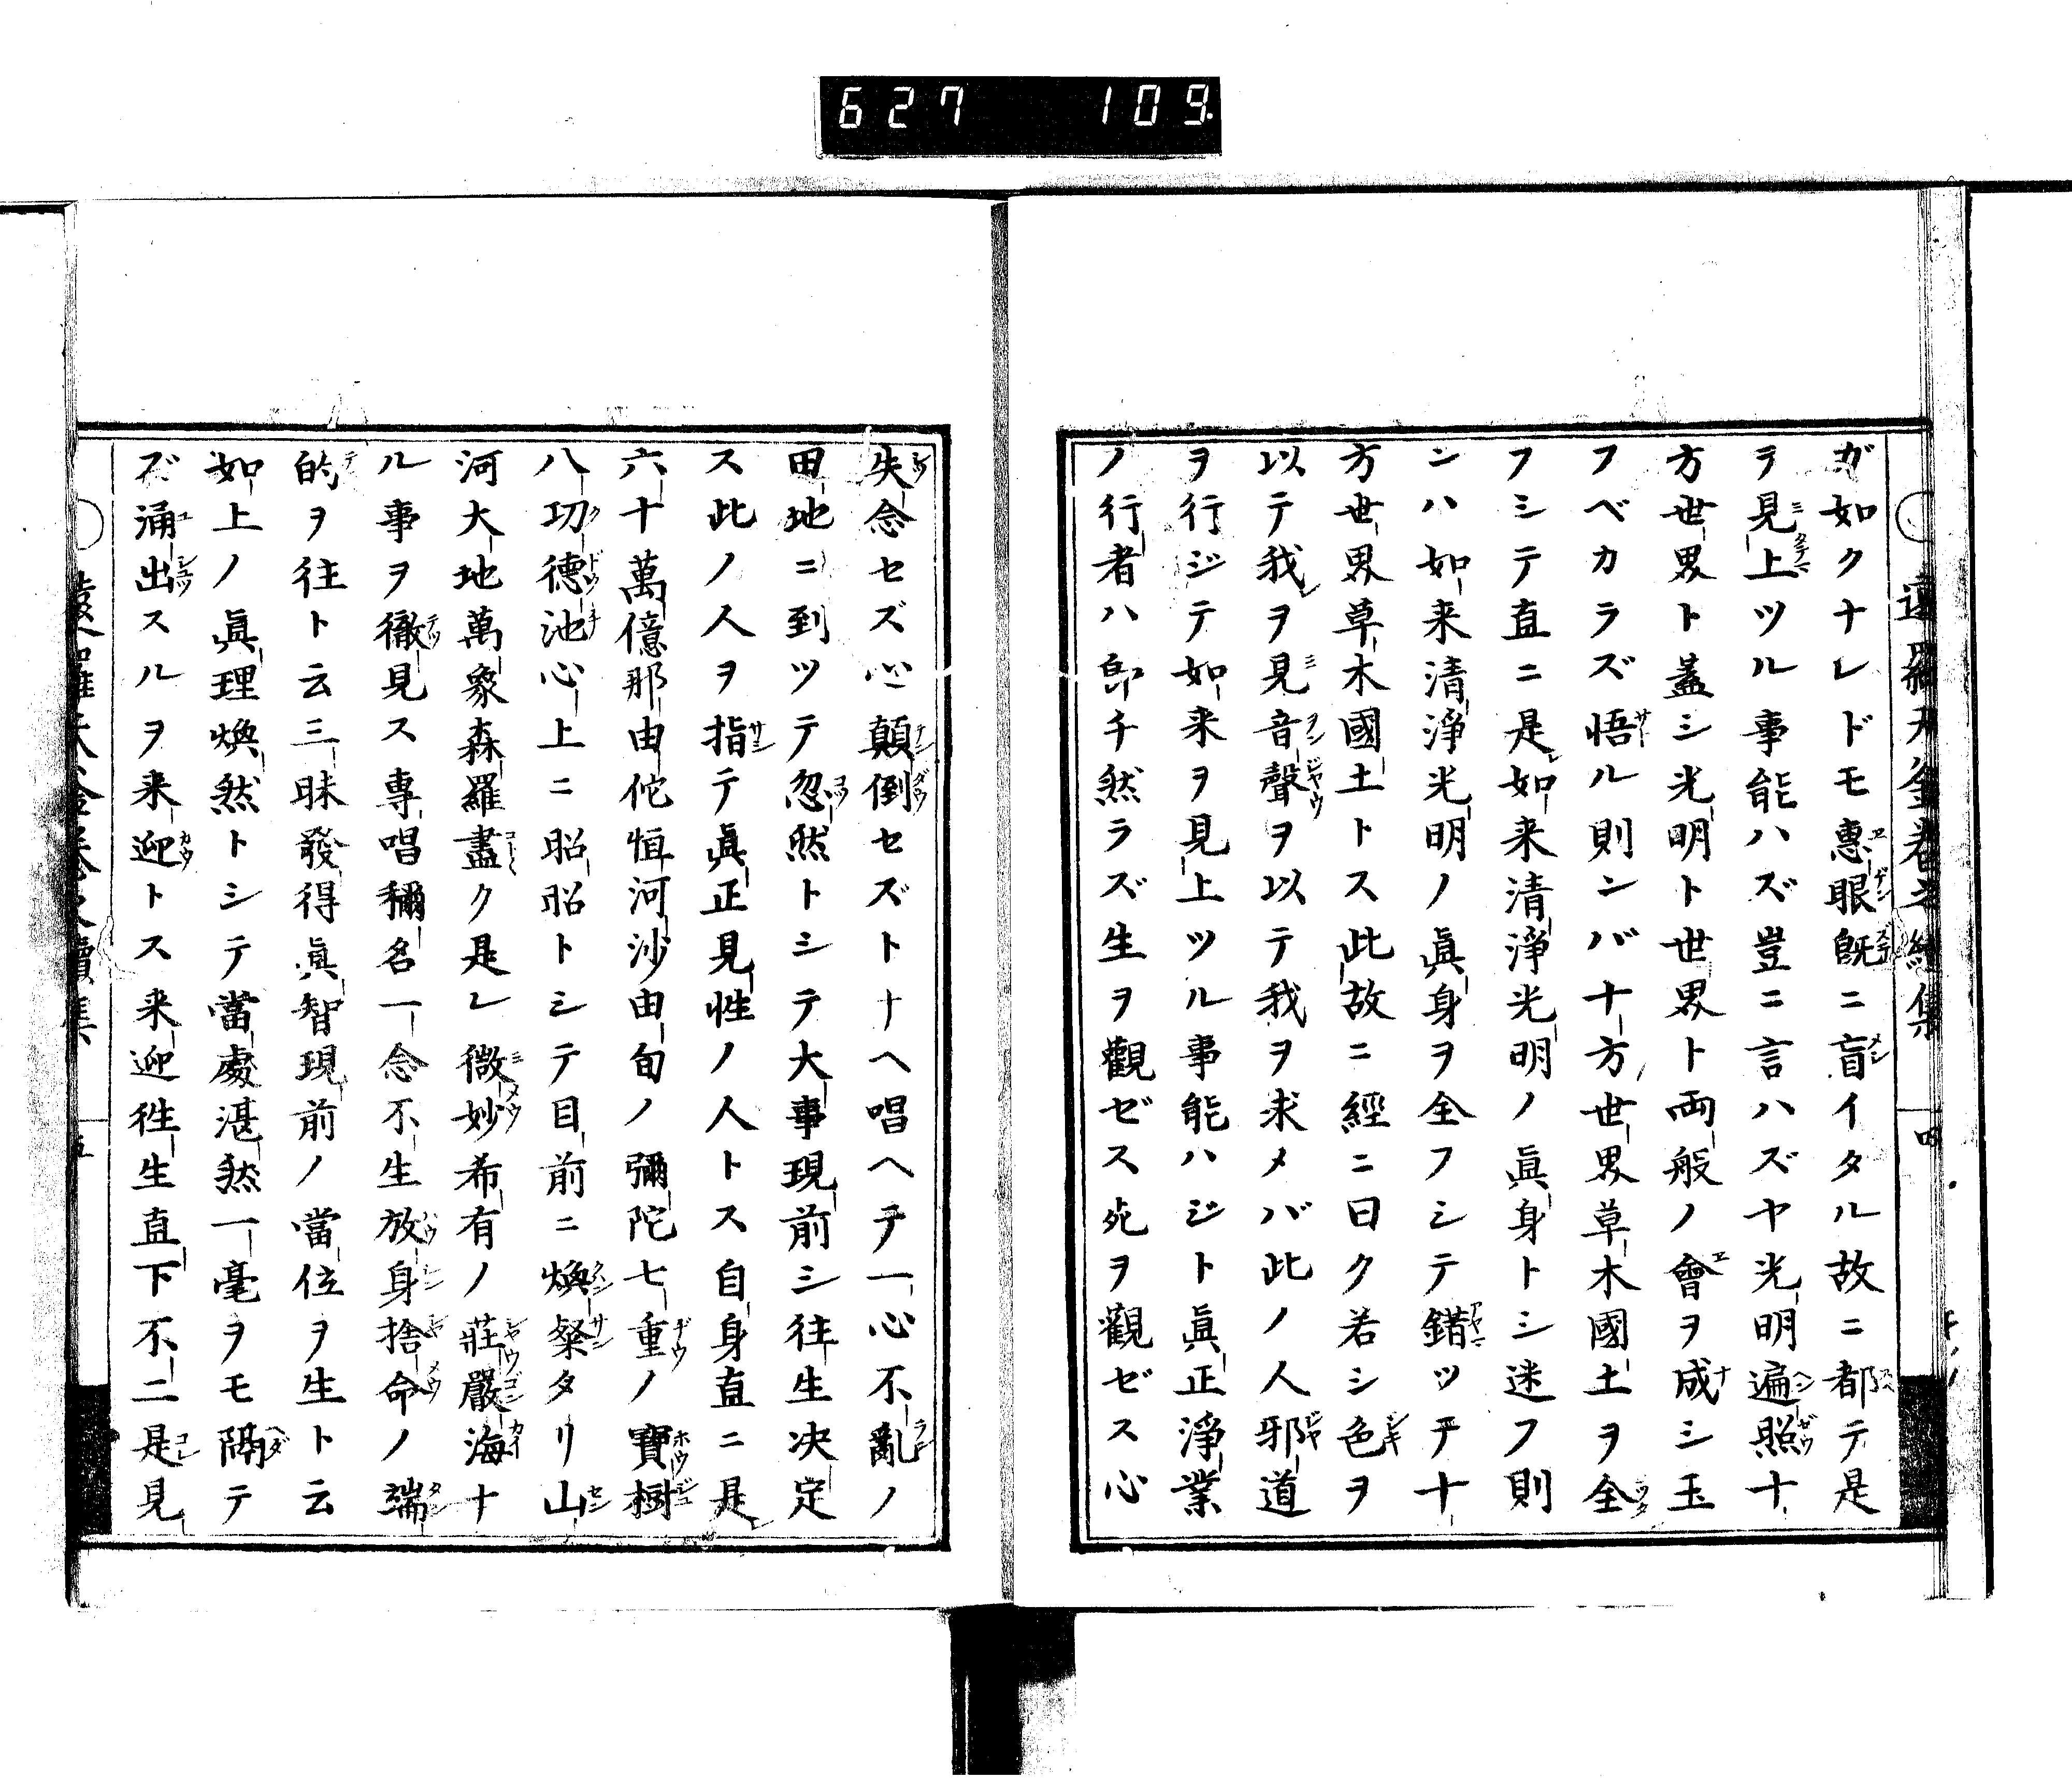 627 109
ガ如クナレドモ惠眼既ニ盲イタル故ニ都テ是
ラ見上ツル事能ハズ豈ニ言ハズヤ光明遍照十
方世界ト蓋シ光明ト世界ト両般ノ會ヲ成シ玉
フベカラズ悟ル則ンバ十方世界草木國土ヲ全
フシテ直ニ是如来清淨光明ノ眞身トシ迷フ則
ンハ如来清淨光明ノ眞身ヲ全フシテ錯ツテ十
方世界草木國土トス此故ニ經ニ曰ク若シ色ヲ
以テ我ヲ見音聲ヲ以テ我ヲ求メバ此ノ人邪道
ヲ行ジテ如来ヲ見上ツル事能ハジト眞正淨業
ノ行者ハ即チ然ラズ生ヲ觀ゼス死ヲ觀ゼス心
四
失念セズ心顛倒セズトナヘ唱ヘテ一心不亂ノ
田地ニ到ツテ忽然トシテ大事現前シ往生决定
ス此ノ人ヲ指テ眞正見性ノ人トス自身直ニ是
六十萬億那由佗恒河沙由旬ノ彌陀七重ノ寶樹
八功德池心上ニ昭昭トシテ目前ニ煥粲タリ山
河大地萬象森羅盡ク是レ微妙希有ノ莊嚴海ナ
ル事ヲ徹見ス專唱稱名一念不生放身捨命ノ端
的ヲ往ト云三昧發得眞智現前ノ當位ヲ生ト云
如上ノ眞理煥然トシテ當處湛然一毫ヲモ隔テ
ズ涌出スルヲ来迎トス来迎徃生直下不二是見
五